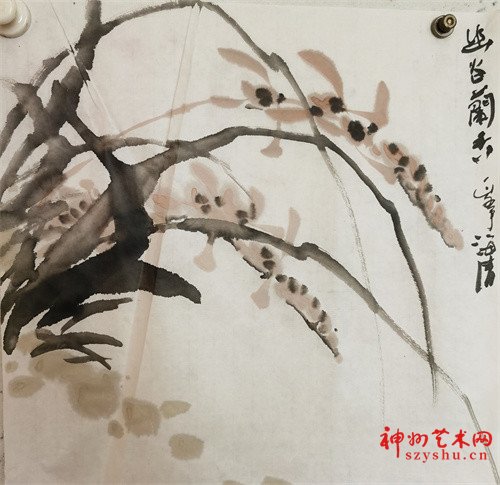 幽谷蘭香
神州艺术网
szyshu.cn